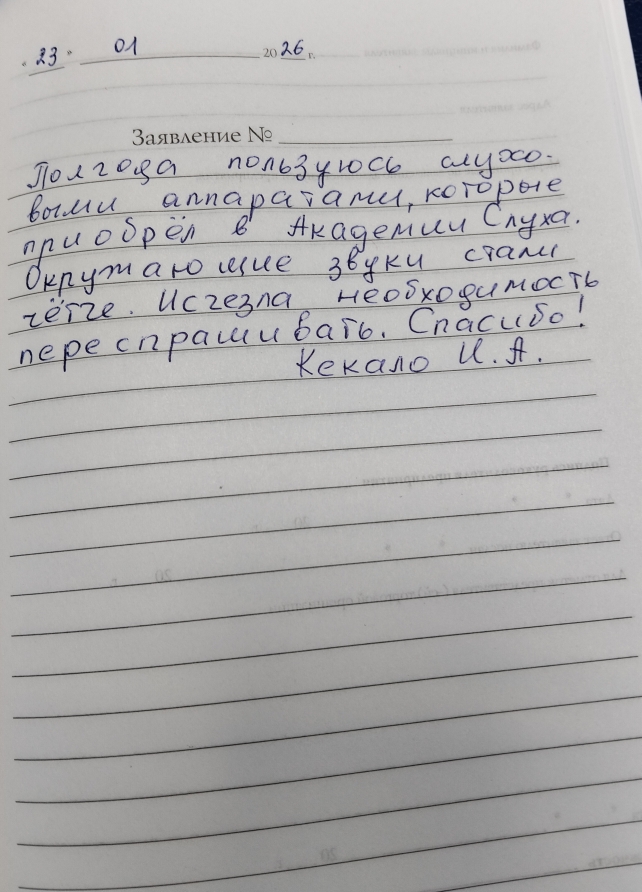 " 23 " 01 2026 г.
Заявление №
Полгода пользуюсь слухо-
выми аппаратами, которые
приобрёл в Академии Слуха.
Окружающие звуки стали
чётче. Исчезла необходимость
переспрашивать. Спасибо!
Кекало И.А.